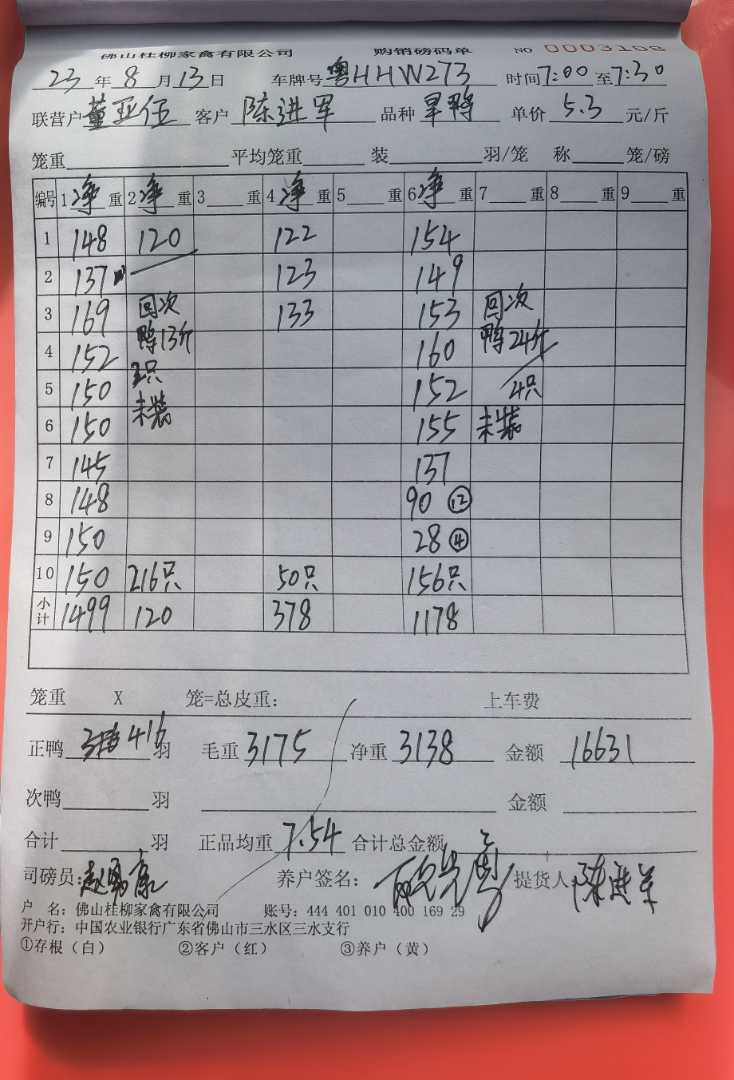 佛山桂柳家禽有限公司 购销磅码单 NO 0003108
23 年 8 月 13 日 车牌号 粤HHW273 时间 7:00 至 7:30
联营户 董亚伍 客户 陈进军 品种 旱鸭 单价 5.3 元/斤
笼重 平均笼重 装 羽/笼 称 笼/磅
编号 1 净 重 2 净 重 3 重 4 净 重 5 重 6 净 重 7 重 8 重 9 重
1 148 120 122 154
2 137 123 149
3 169 回次 133 153 回次
4 152 鸭13斤 160 鸭24斤
5 150 2只 152 4只
6 150 未装 155 未装
7 145 137
8 148 90 ⑫
9 150 28 ④
10 150 216只 50只 156只
小计 1499 120 378 1178
笼重 X 笼=总皮重: 上车费
正鸭 416 羽 毛重 3175 净重 3138 金额 16631
次鸭 羽 金额
合计 羽 正品均重 7.54 合计总金额
司磅员: 赵勇康 养户签名: 提货人 陈进军
户 名: 佛山桂柳家禽有限公司 账号: 444 401 010 400 169 29
开户行: 中国农业银行广东省佛山市三水区三水支行
①存根（白） ②客户（红） ③养户（黄）